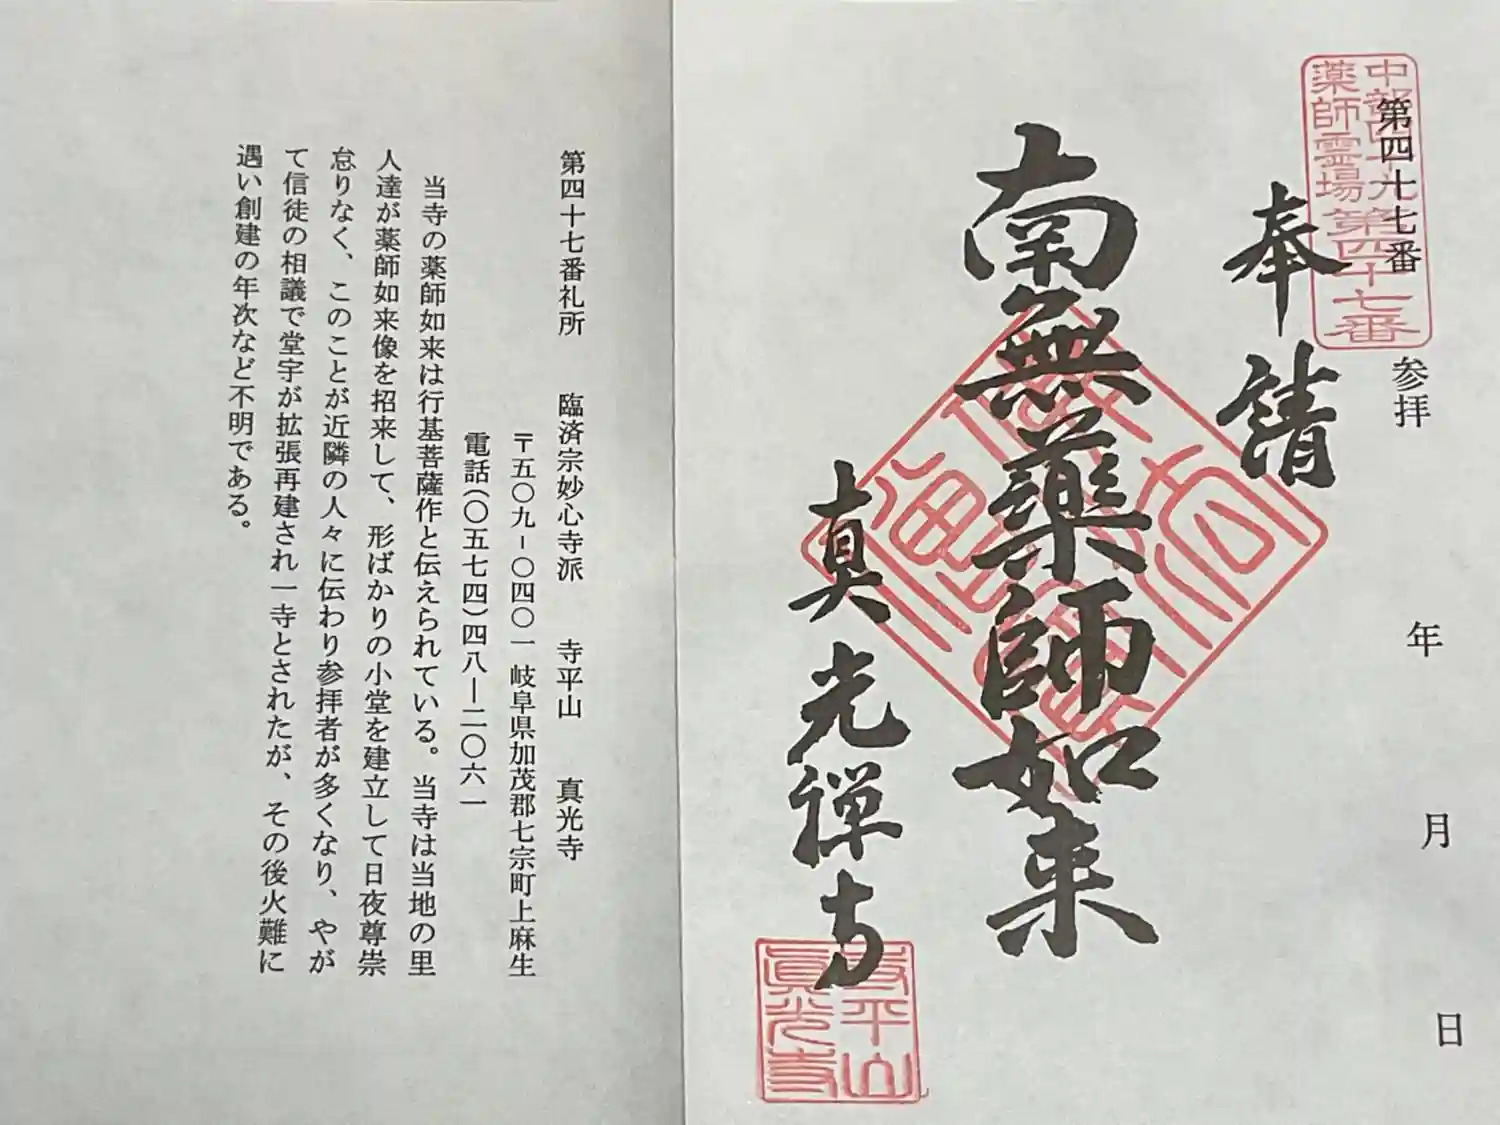 中部四十九
薬師霊場
第四十七番
第四十七番
参拝 年 月 日
奉請
南無薬師如来
真光禅寺
寺平山
真光寺
第四十七番礼所 臨済宗妙心寺派 寺平山 真光寺
〒五〇九-〇四〇一 岐阜県加茂郡七宗町上麻生
電話(〇五七四)四八ー二〇六一
当寺の薬師如来は行基菩薩作と伝えられている。当寺は当地の里
人達が薬師如来像を招来して、形ばかりの小堂を建立して日夜尊崇
怠りなく、このことが近隣の人々に伝わり参拝者が多くなり、やが
て信徒の相議で堂宇が拡張再建され一寺とされたが、その後火難に
遇い創建の年次など不明である。